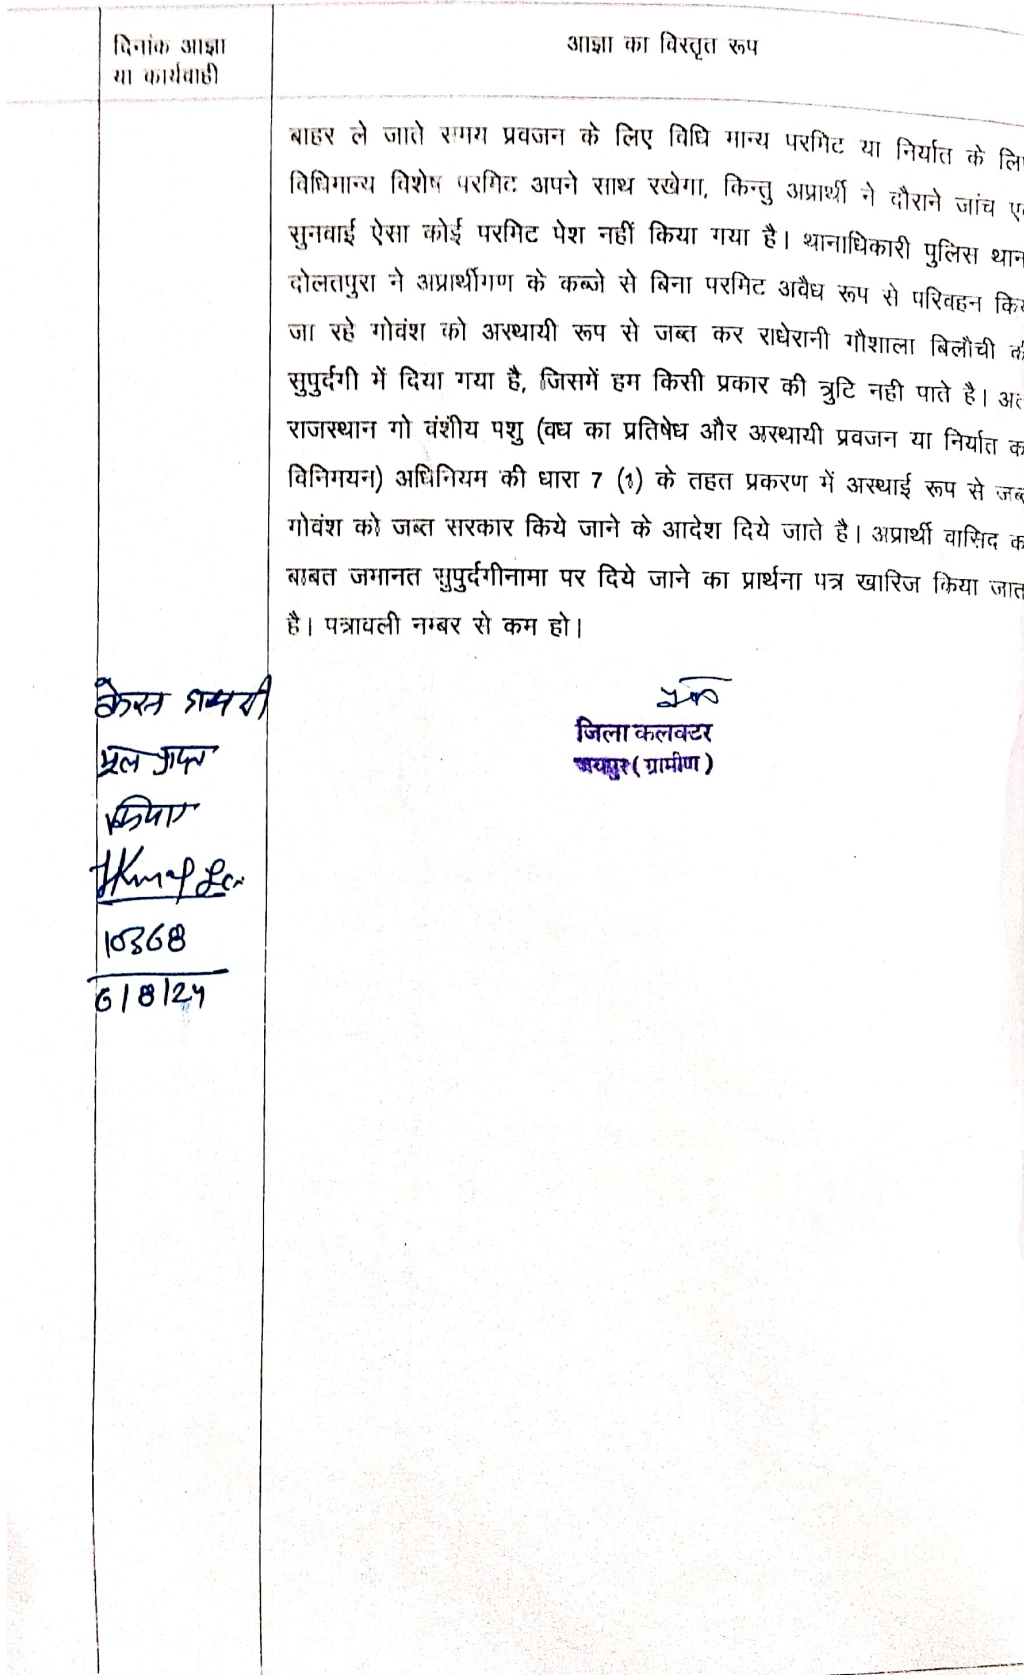 दिनांक आज्ञा
या कार्यवाही
आज्ञा का विस्तृत रूप
बाहर ले जाते समय प्रवजन के लिए विधि मान्य परमिट या निर्यात के
विधिमान्य विशेष परमिट अपने साथ रखेगा, किन्तु अप्रार्थी ने दौराने जांच
सुनवाई ऐसा कोई परमिट पेश नहीं किया गया है। थानाधिकारी पुलिस
दोलतपुरा ने अप्रार्थीगण के कब्जे से बिना परमिट अवैध रूप से परिवहन
जा रहे गोवंश को अस्थायी रूप से जब्त कर राधेरानी गौशाला बिलौची
सुपुर्दगी में दिया गया है, जिसमें हम किसी प्रकार की त्रुटि नही पाते है।
राजस्थान गो वंशीय पशु (वध का प्रतिषेध और अस्थायी प्रवजन या निर्यात
विनिमयन) अधिनियम की धारा 7 (1) के तहत प्रकरण में अस्थाई रूप से
गोवंश को जब्त सरकार किये जाने के आदेश दिये जाते है। अप्रार्थी वासिद
बाबत जमानत सुपुर्दगीनामा पर दिये जाने का प्रार्थना पत्र खारिज किया
है। पत्रावली नम्बर से कम हो।
जिला कलक्टर
जयपुर (ग्रामीण)
मूल प्राप्त
किया
10368
6/8/24